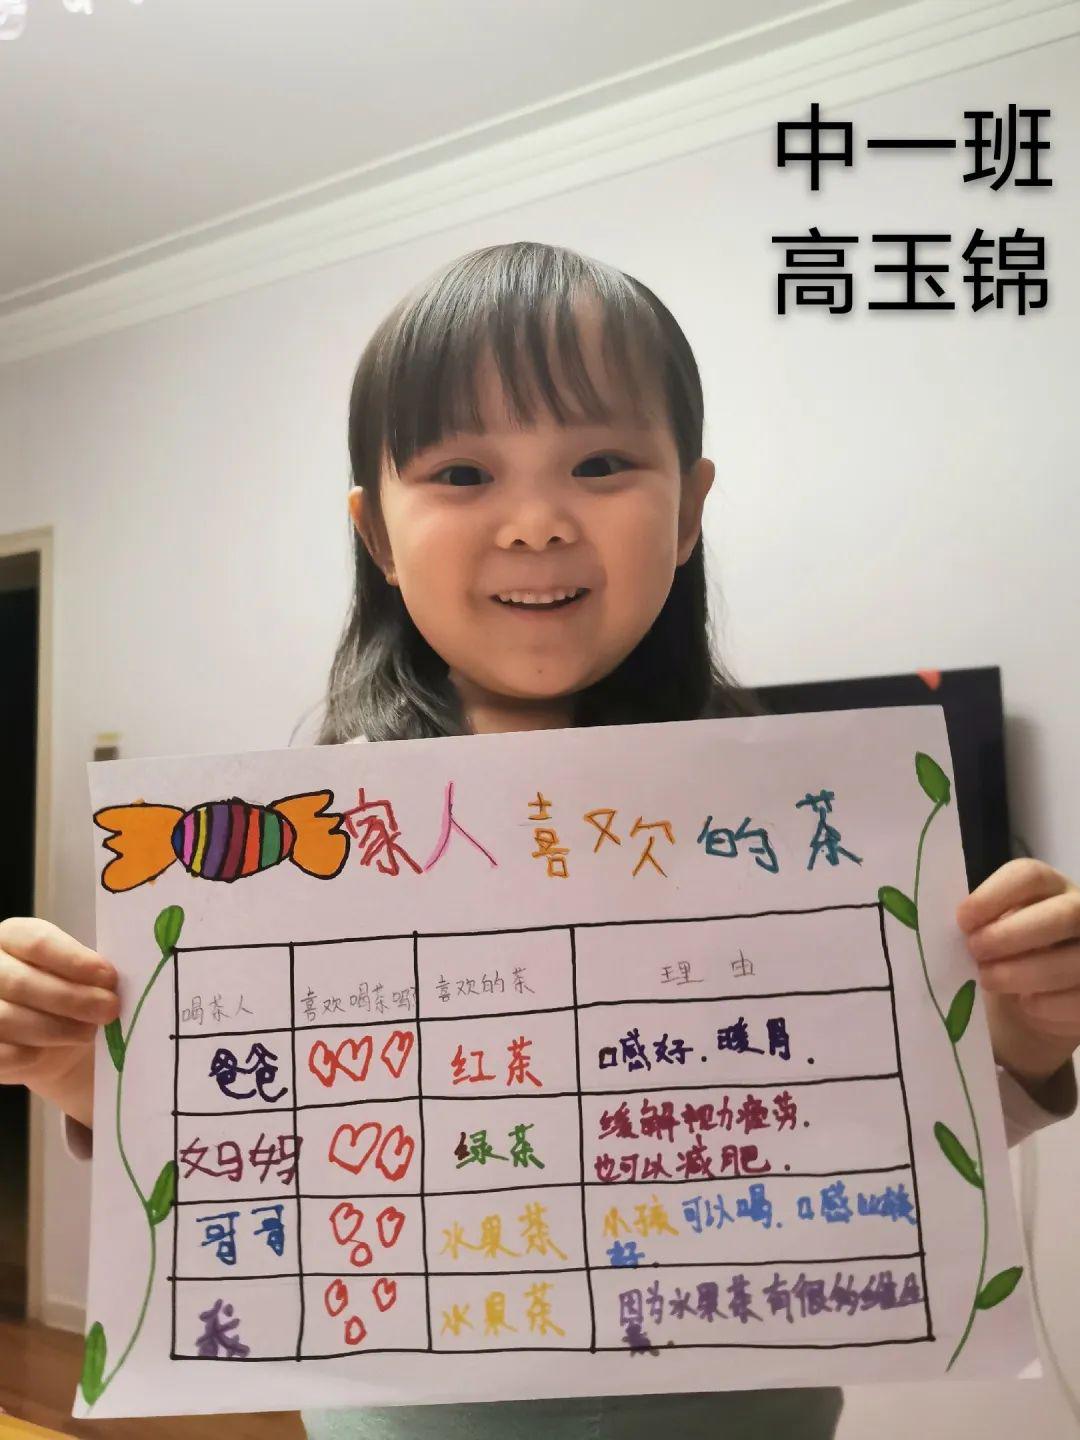 中一班
高玉锦
家人喜欢的茶
喝茶人 喜欢喝茶吗? 喜欢的茶 理由
爸爸 红茶 口感好.暖胃.
妈妈 绿茶 缓解视力疲劳.
也可以减肥.
哥哥 水果茶 小孩可以喝.口感比较
好.
我 水果茶 因为水果茶有很多维生
素.